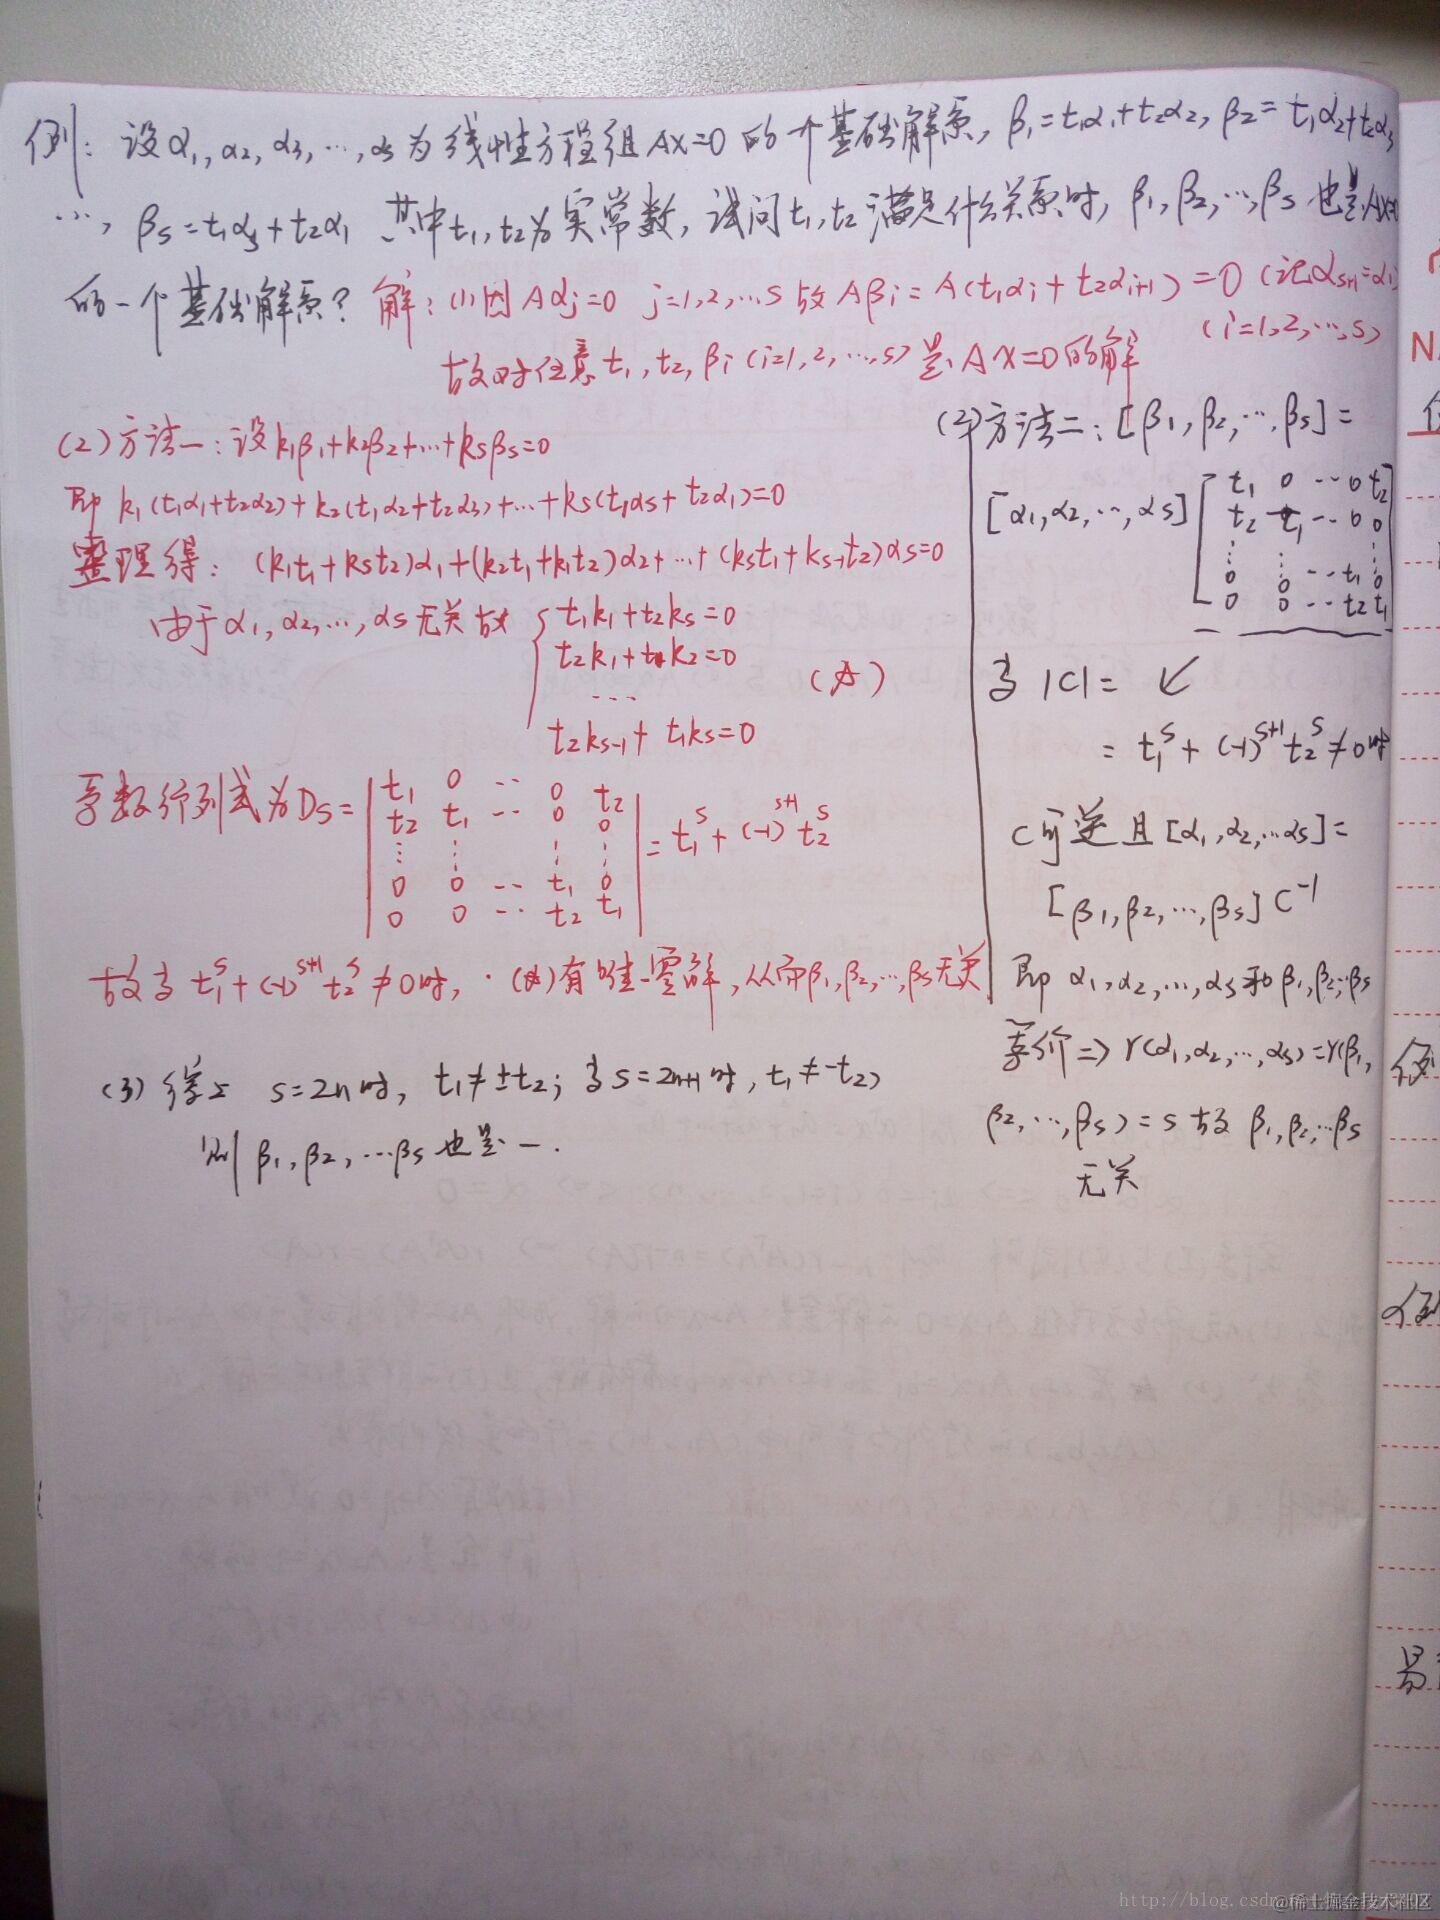 例：设α₁,α₂,α₃,…,αs为线性方程组AX=0的一个基础解系，β₁=t₁α₁+t₂α₂，β₂=t₁α₂+t₂α₃
…，βs=t₁αs+t₂α₁ 其中t₁,t₂为实常数，试问t₁,t₂满足什么关系时，β₁,β₂,…,βs也是AX=0
的一个基础解系？ 解：(1)因Aαj=0 j=1,2,…s 故Aβi=A(t₁αi+t₂αi+1)=0 (记αs+1=α₁)
(i=1,2,…,s)
故对任意t₁,t₂,βi(i=1,2,…,s)是AX=0的解
(2)方法一：设k₁β₁+k₂β₂+…+ksβs=0
即 k₁(t₁α₁+t₂α₂)+k₂(t₁α₂+t₂α₃)+…+ks(t₁αs+t₂α₁)=0
整理得：(k₁t₁+kst₂)α₁+(k₂t₁+k₁t₂)α₂+…+(kst₁+ks-1t₂)αs=0
由于α₁,α₂,…,αs无关故
t₁k₁+t₂ks=0
t₂k₁+t₁k₂=0
… (A)
t₂ks-1+t₁ks=0
系数行列式为Ds=
t₁ 0 … 0 t₂
t₂ t₁ … 0 0
⋮ ⋮ ⋮ ⋮
0 0 … t₁ 0
0 0 … t₂ t₁
= t₁^s+(-1)^s+1 t₂^s
故当 t₁^s+(-1)^s+1 t₂^s≠0时，(A)有唯一零解，从而β₁,β₂,…,βs无关
(3) 综上 s=2n时，t₁≠±t₂；当s=2n+1时，t₁≠-t₂，
则β₁,β₂,…βs也是一.
(2)方法二：[β₁,β₂,…,βs]=
[α₁,α₂,…,αs]
t₁ 0 … 0 t₂
t₂ t₁ … 0 0
⋮ ⋮ ⋮
0 0 … t₁ 0
0 0 … t₂ t₁
当 |C|= ↙
= t₁^s+(-1)^s+1 t₂^s≠0时
C可逆且[α₁,α₂,…αs]=
[β₁,β₂,…,βs]C⁻¹
即 α₁,α₂,…,αs和β₁,β₂,…βs
等价⇒r(α₁,α₂,…,αs)=r(β₁,
β₂,…,βs)=s 故 β₁,β₂,…βs
无关
例
例
易
@稀土掘金技术社区